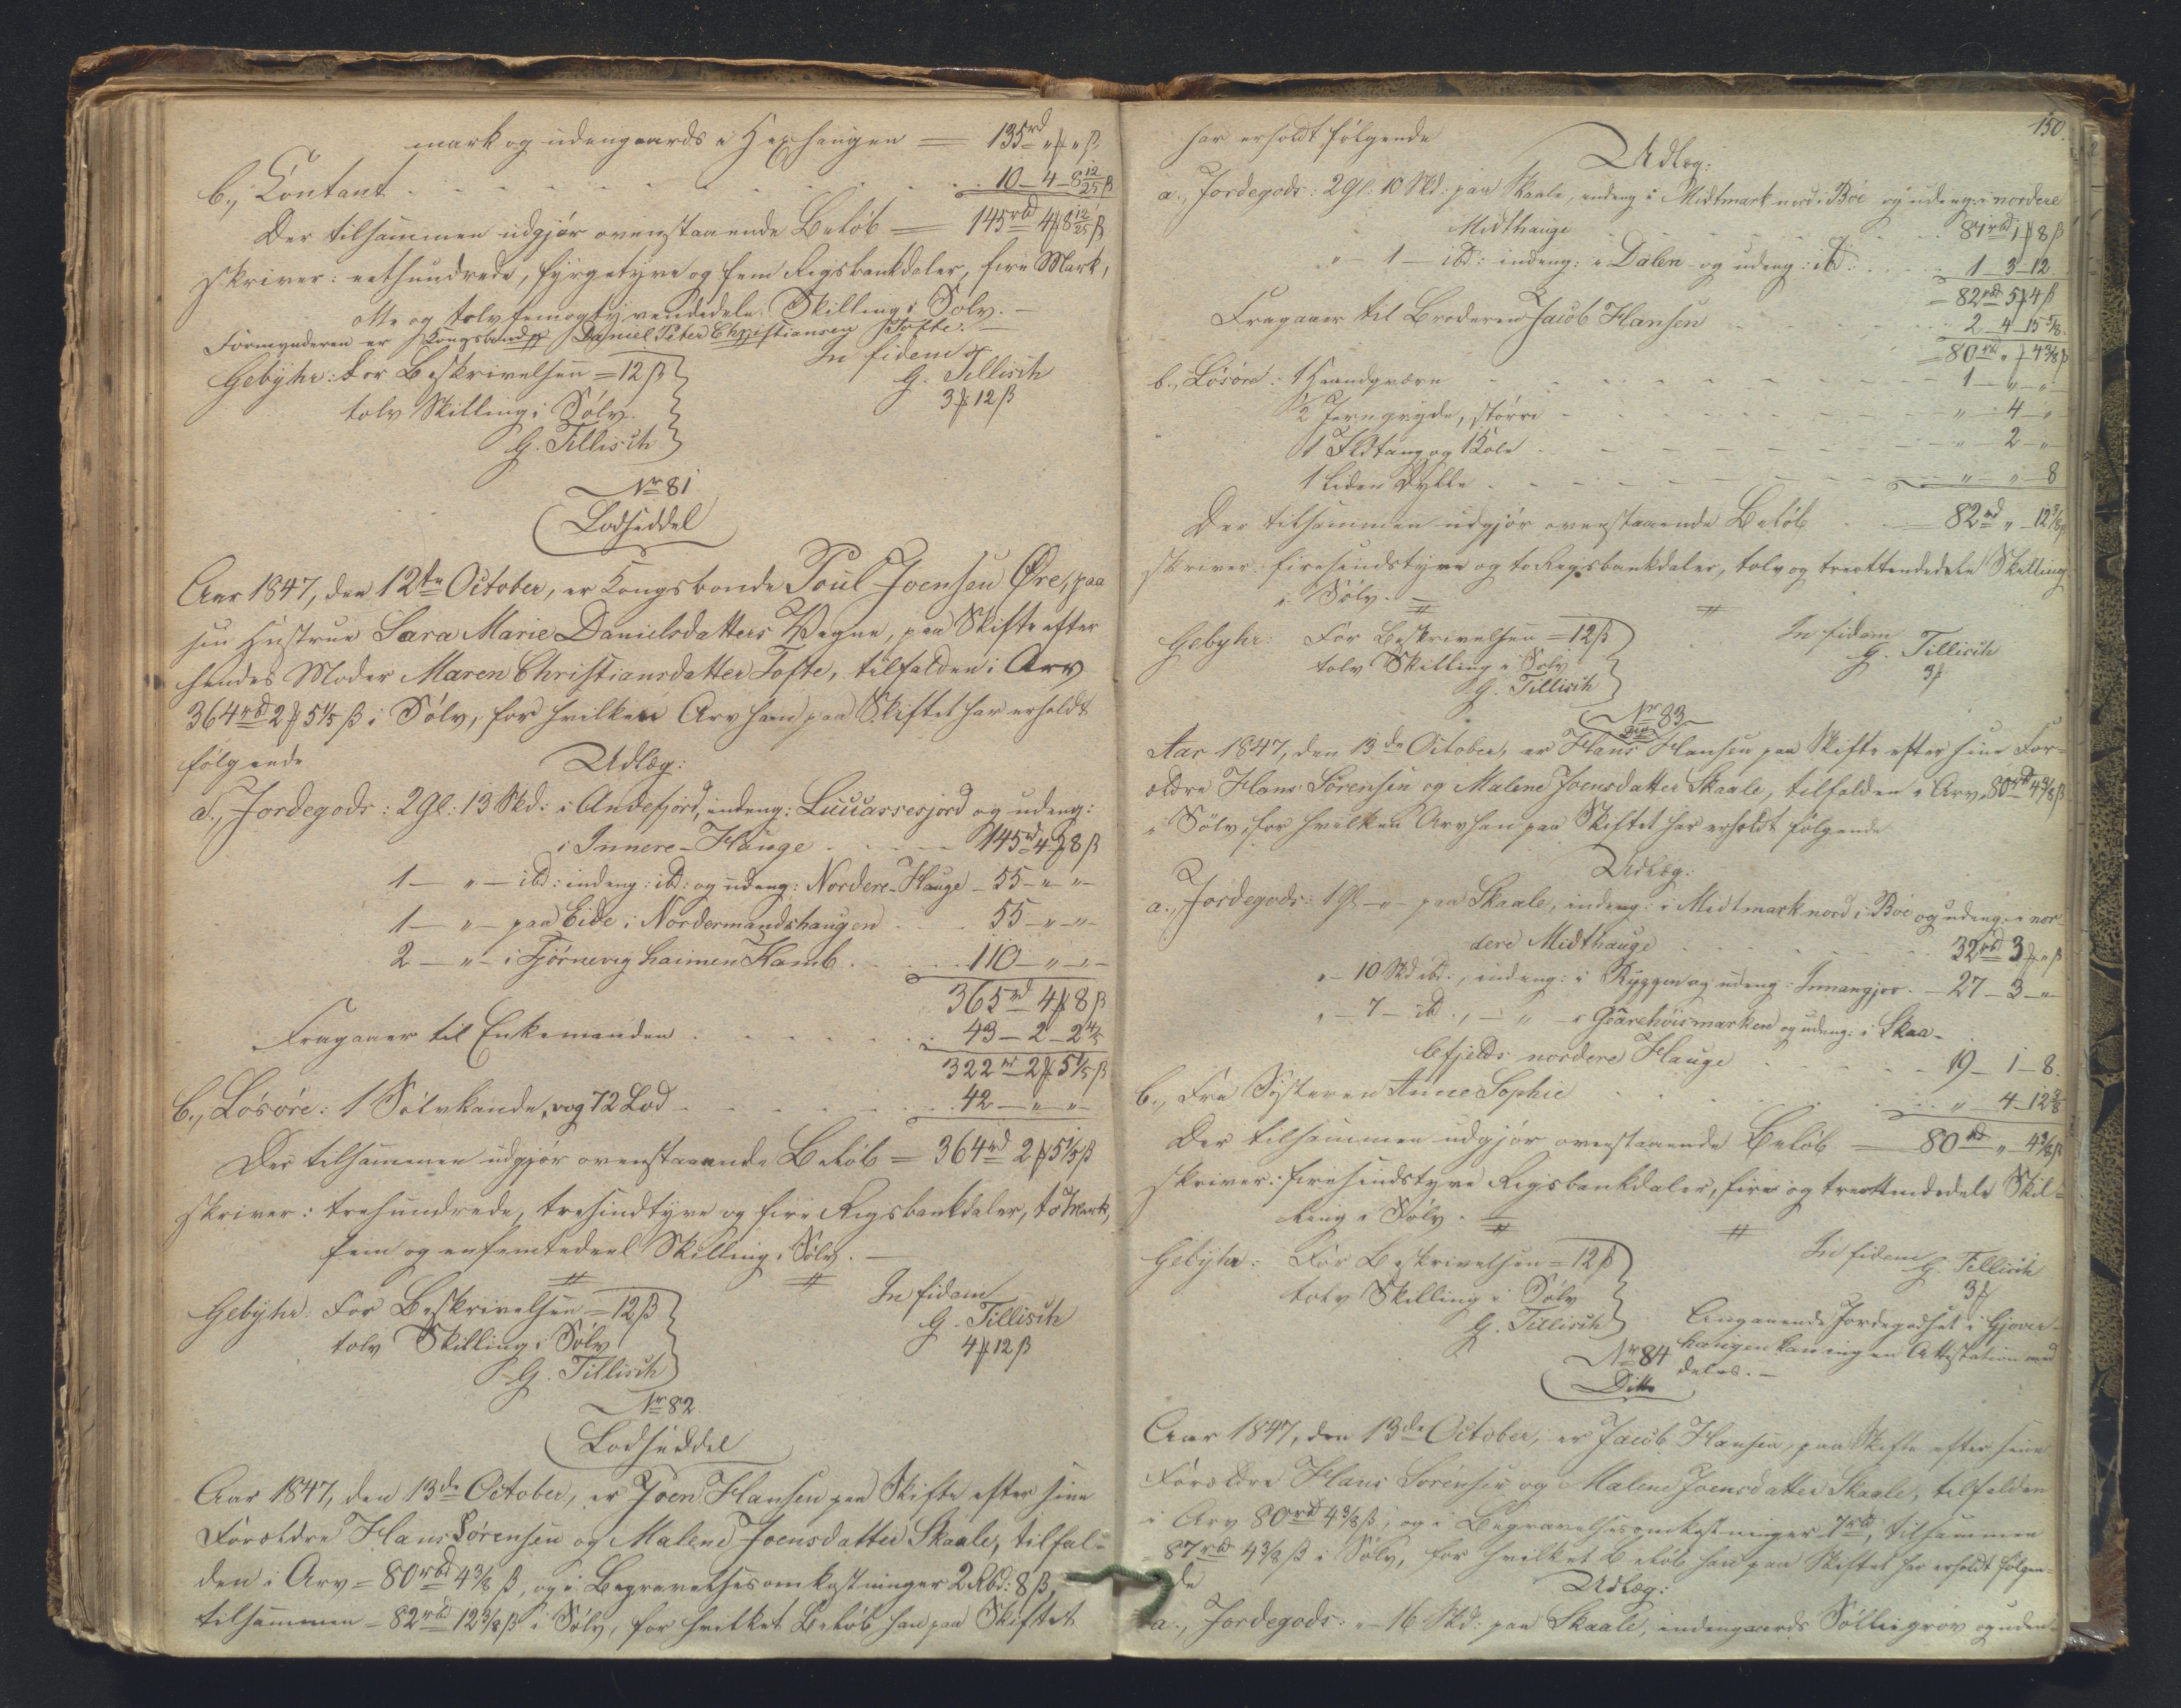 mark og udengaards i Hexhaugen = 135rd „ ₻ „ ß
b., Contant . . . . 10 – 4 – 8 12/25 ß
Der tilsammen udgjør ovenstaaende Beløb = 145rbd 4 ₻ 8 12/25 ß
skriver: eethundrede, fyrgetyve og fem Rigsbankdaler, fire Mark,
otte og tolv femogtyvendedele Skilling i Sølv. –
Formynderen er Kongsbonde Daniel Peter Christiansen Tofte. –
Gebyhr: For Beskrivelsen = 12 ß
tolv Skilling i Sølv.
G. Tillisch
In fidem
G. Tillisch
3 ₻ 12 ß
Nr 81
Lodseddel
Aar 1847, den 12te October, er Kongsbonde Poul Joensen Øre, paa
sin Hustrue Sara Marie Danielsdatters Vegne, paa Skifte efter
hendes Moder Maren Christiansdatter Tofte, tilfalden i Arv
364rbd 2 ₻ 5 1/5 ß i Sølv, for hvilken Arv han paa Skiftet har erholdt
følgende
Udlæg:
a., Jordegods: 2 Gl: 13 Skd: i Andefjord, indeng: Lucassesjord og udeng:
i Innere-Hauge . . . 145rd 4 ₻ 8 ß
1 – „ – ibd: indeng: ibd: og udeng: Nordere-Hauge – 55 – „ – „ –
1 – „ – paa Eide i Nordermandshaugen . . 55 – „ – „ –
2 – „ – i Tjørnevig haimen Kamb . . . 110 – „ – „ –
365rd 4 ₻ 8 ß
Fragaaer til Enkemanden . . . . 43 – 2 – 2 4/5
322rd 2 ₻ 5 1/5 ß
b., Løsøre: 1 Sølvkande, vog 72 Lod . . . . 42 – „ – „ –
Der tilsammen udgjør ovenstaaende Beløb = 364rd 2 ₻ 5 1/5 ß
skriver: trehundrede, tresindtyve og fire Rigsbankdaler, to Mark,
fem og en femtedeel Skilling i Sølv. –
Gebyhr: For Beskrivelsen = 12 ß
tolv Skilling i Sølv
G. Tillisch
In fidem
G. Tillisch
4 ₻ 12 ß
Nr 82
Lodseddel
Aar 1847, den 13de October, er Joen Hansen paa Skifte efter sine
Forældre Hans Sørensen og Malene Joensdatter Skaale, tilfal-
den i Arv = 80rbd 4 3/8 ß, og i Begravelsesomkostninger 2 Rbd: 8 ß,
tilsammen = 82rbd 12 3/8 ß i Sølv, for hvilket Beløb han paa Skiftet
150.
har erholdt følgende
Udlæg:
a., Jordegods: 2 Gl: 10 Skd: paa Skaale, indeng: i Midtmark nord i Bøe og udeng: i nordere
Midthauge . . . 81rbd 1 ₻ 8 ß
„ – 1 – ibd: indeng: i Dalen og udeng: ibd: . . . 1 – 3 – 12
= 82rbd 5 ₻ 4 ß
Fragaaer til Broderen Jacob Hansen . . . 2 – 4 – 15 5/8
= 80rbd „ ₻ 4 3/8 ß
b., Løsøre: 1 Haandqværn . . . 1 – „ – „
1/2 Jerngryde, større . . . „ – 4 – „
1 Ildtang og 1 Kole . . . „ – 2 – „
1 liden Dylle . . . „ – „ – 8
Der tilsammen udgjør ovenstaaende Beløb . . 82rd „ – 12 3/8 ß
skriver: firesindstyve og to Rigsbankdaler, tolv og treottendedele Skilling
i Sølv. –
Gebyhr: For Beskrivelsen = 12 ß
tolv Skilling i Sølv
G. Tillisch
In fidem
G. Tillisch
3 ₻
Nr 83
Aar 1847, den 13de October, er Hans Hansen paa Skifte efter sine For-
ældre Hans Sørensen og Malene Joensdatter Skaale, tilfalden i Arv 80rbd 4 3/8 ß
i Sølv, for hvilken Arv han paa Skiftet har erholdt følgende
Udlæg:
a., Jordegods: 1 Gl – „ – paa Skaale, indeng: i Midtmark nord i Bøe og udeng: i nor-
dere Midthauge . . . 32rbd 3 ₻ „ ß
„ – 10 Skd ibd:, indeng: i Ryggen og udeng: Innangjor . – 27 – 3 – „
„ – 7 – ibd:, – „ – i Gearehøismarken og udeng: i Skaa-
lefjelds nordere Hauge . . . 19 – 1 – 8.
b., Fra Søsteren Anne Sophie . . . „ – 4 – 12 3/8
Der tilsammen udgjør ovenstaaende Beløb = 80rd „ 4 3/8 ß
skriver: firesindstyve Rigsbankdaler, fire og treottendedele Skil-
ling i Sølv. –
Gebyhr: For Beskrivelsen = 12 ß
tolv Skilling i Sølv
G. Tillisch
In fidem
G. Tillisch
3 ₻
Angaaende Jordegodset i Gjover-
haugen kan ingen Attestation med-
deles. –
Nr 84
Ditto
Aar 1847, den 13de October, er Jacob Hansen, paa Skifte efter sine
Forældre Hans Sørensen og Malene Joensdatter Skaale, tilfalden
i Arv 80rbd 4 3/8 ß, og i Begravelsesomkostninger 7rbd, tilsammen
= 87rbd 4 3/8 ß i Sølv, for hvilket Beløb han paa Skiftet har erholdt følgen-
de
Udlæg:
a., Jordegods: „ – 16 Skd: paa Skaale, indengaards Søltiegrov og uden-